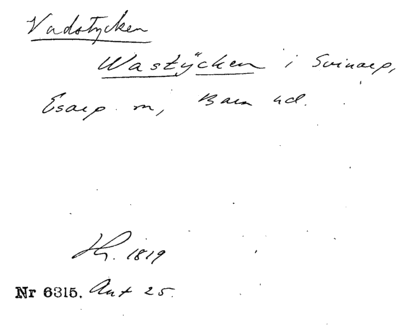 Vadstycken
Wastÿcken i Svinarp,
Esarp m, Bara hd.
Hr. 1819
Nr 6315. Ant 25.